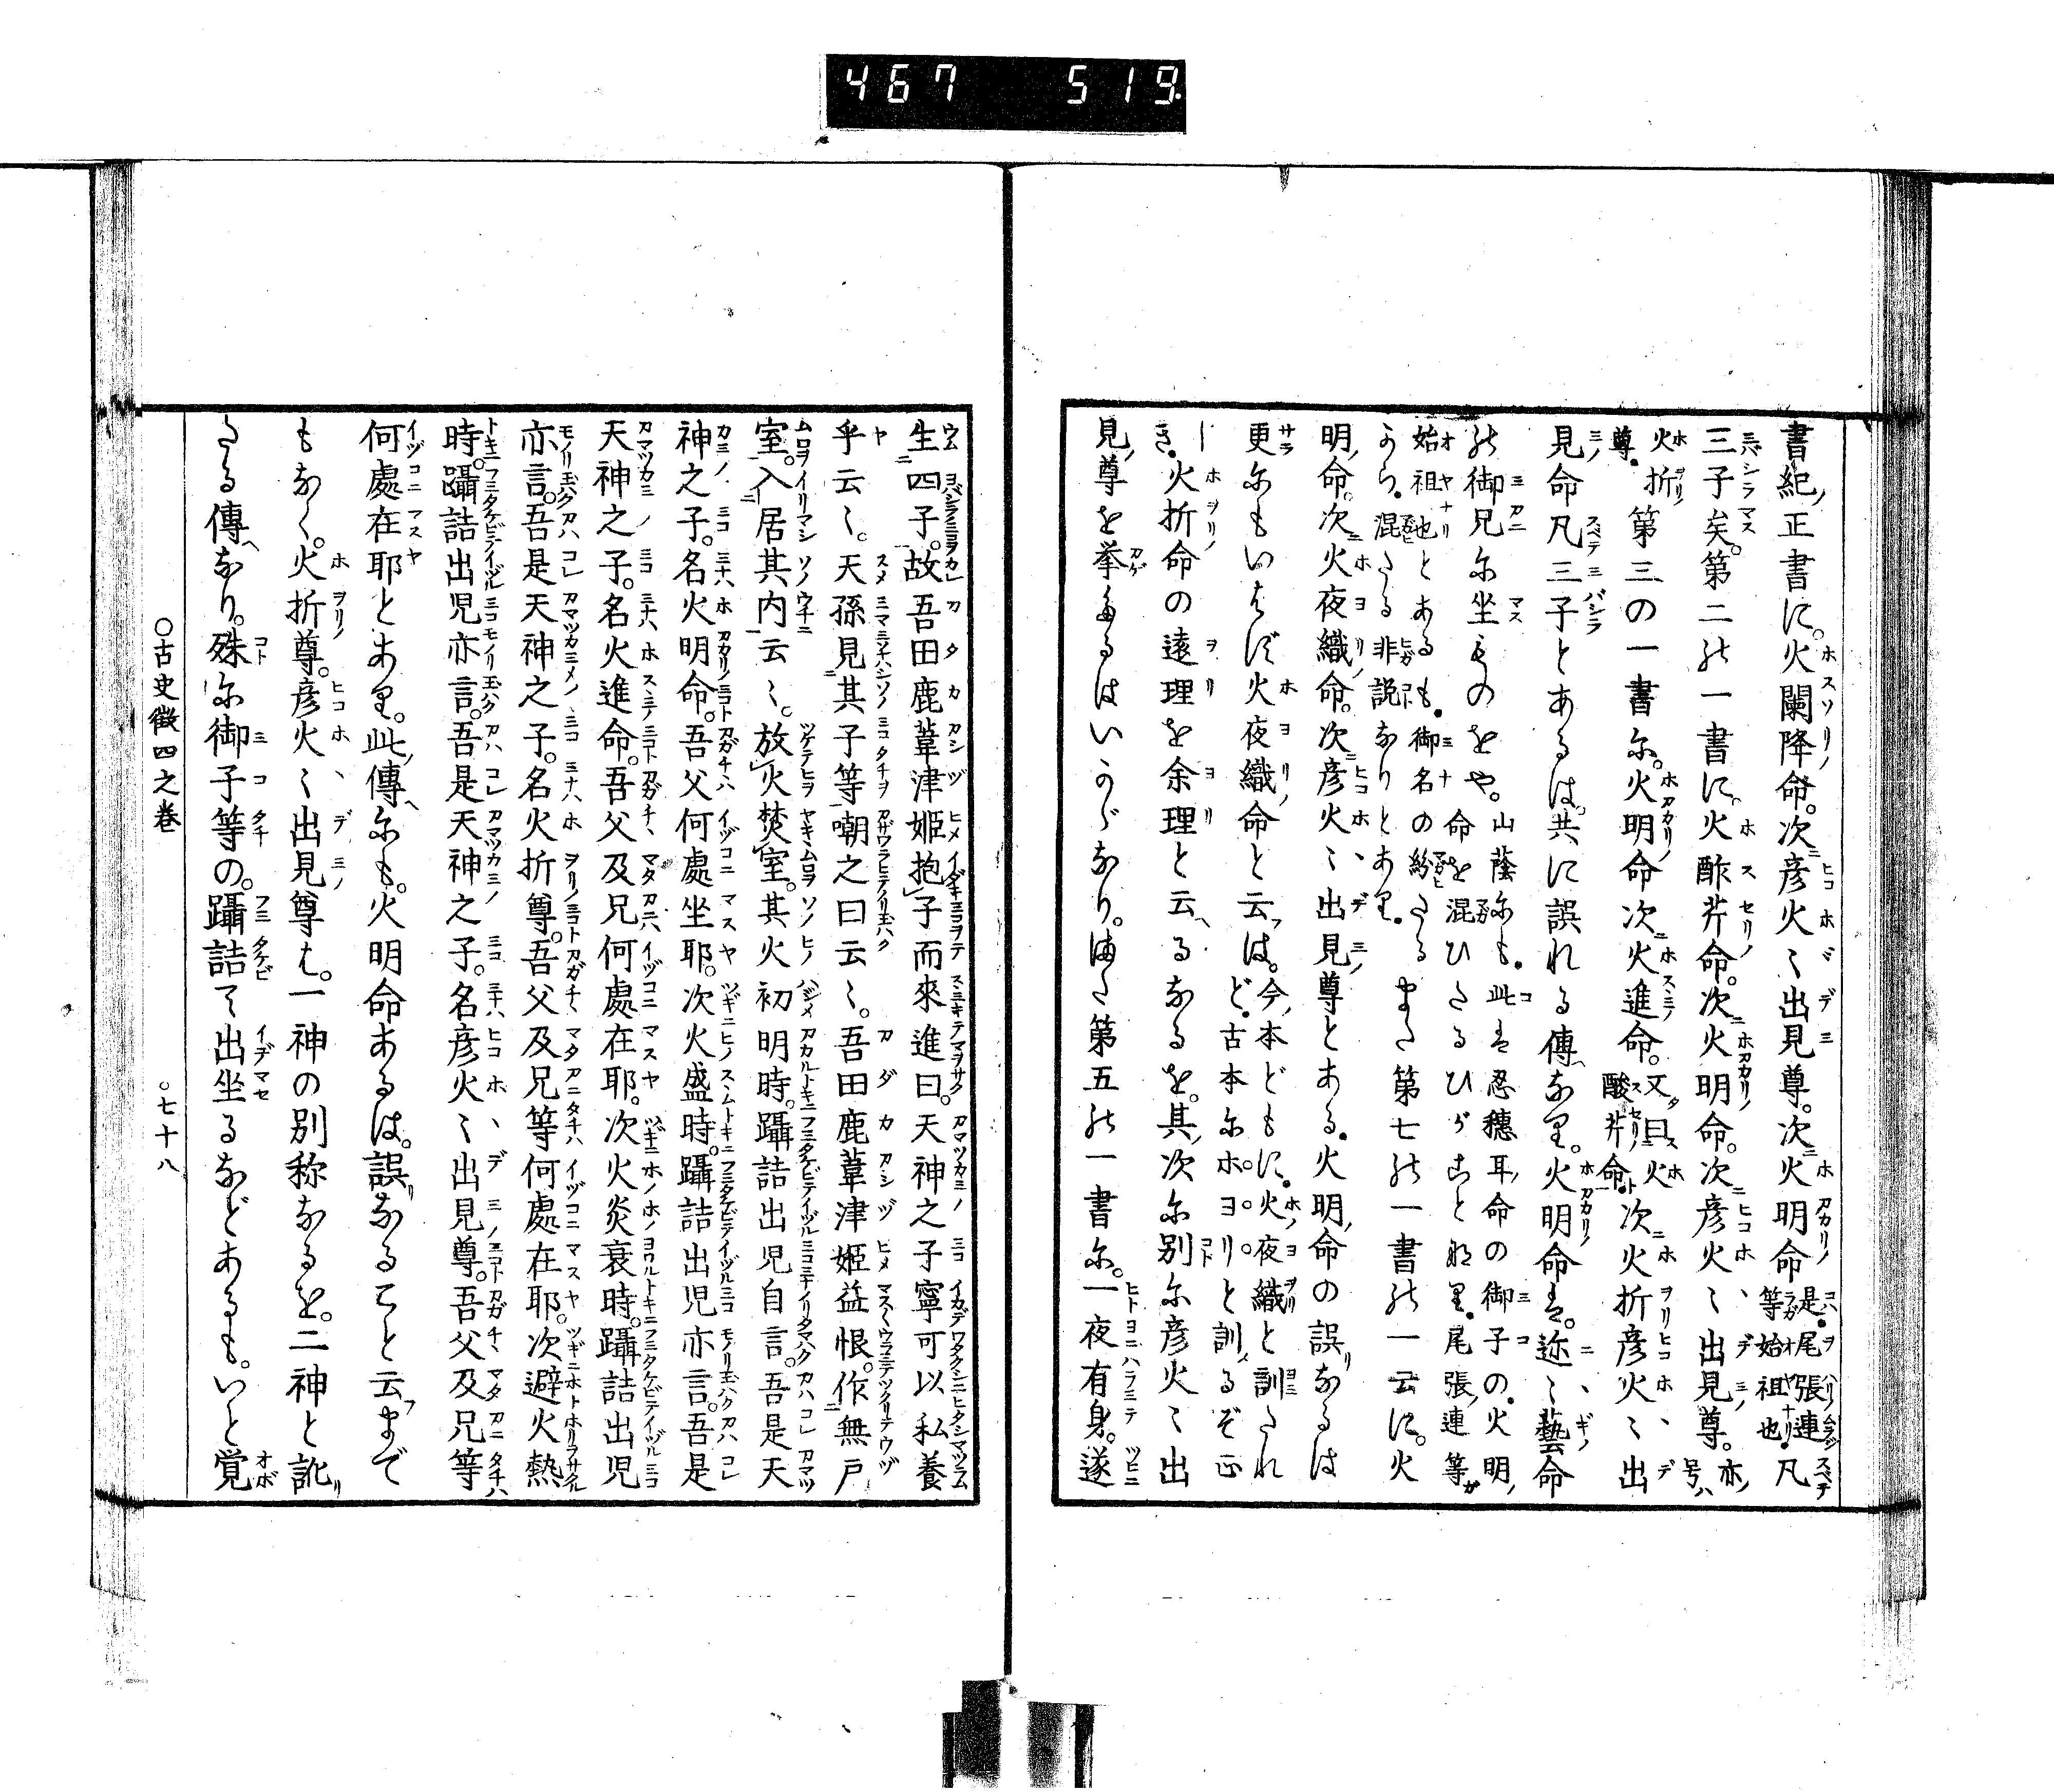 467 519.
書紀ノ正書に。火闌降命。次彦火〻出見尊。次火明命是。尾張連等始祖也。凡
三子矣。第二の一書に。火酢芹命。次火明命。次彦火〻出見尊。亦ノ号ハ
火折尊。第三の一書に。火明命次火進命。又曰火酸芹命。次火折彦火〻出
見命凡三子とあるは。共に誤れる傳なり。火明命は。迩〻藝命
の御兄に坐ものをや。山蔭にも。此は忍穗耳命の御子の。火明命を混ひたるひがことなり。尾張連等が
始祖也とあるも。御名の紛たるから。混たる非説なりとあり。また第七の一書の一云に。火
明命。次火夜織命。次彦火〻出見尊とある。火明命の誤なるは
更にもいはず火夜織命と云は。今本どもに。火夜織と訓たれど。古本にホヨリと訓るぞ正
しき。火折命の遠理を余理と云るなるを。其次に別に彦火〻出
見尊を挙たるはいかゞなり。また第五の一書に。一夜有身。遂
生四子。故吾田鹿葦津姫抱子而來進曰。天神之子寧可以私養
乎云〻。天孫見其子等嘲之曰云〻。吾田鹿葦津姫益恨。作無戸
室。入居其内云〻。放火焚室。其火初明時。躡詰出児自言。吾是天
神之子。名火明命。吾父何處坐耶。次火盛時。躡詰出児亦言。吾是
天神之子。名火進命。吾父及兄何處在耶。次火炎衰時。躡詰出児
亦言。吾是天神之子。名火折尊。吾父及兄等何處在耶。次避火熱
時。躡詰出児亦言。吾是天神之子。名彦火〻出見尊。吾父及兄等
何處在耶とあり。此傳にも。火明命あるは。誤なること云まで
もなく。火折尊。彦火〻出見尊は。一神の別称なるを。二神と訛
たる傳なり。殊に御子等の。躡詰て出坐るなどあるも。いと覚
○古史徴四之巻
○七十八